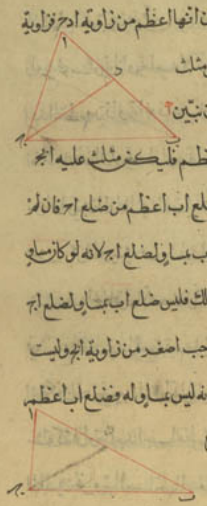 انها اعظم من زاوية ادح فزاوية
ا
مثلث
د
نبين
ب
ظم فليكن مثلث عليه ابج
لع اب اعظم من ضلع اج فان لم
ب مساو لضلع اج لانه لو كان مساو
لك فليس ضلع اب مساو لضلع اج
جب اصغر من زاوية ابج وليست
نه ليس مساو له فضلع اب اعظم
ا
ب